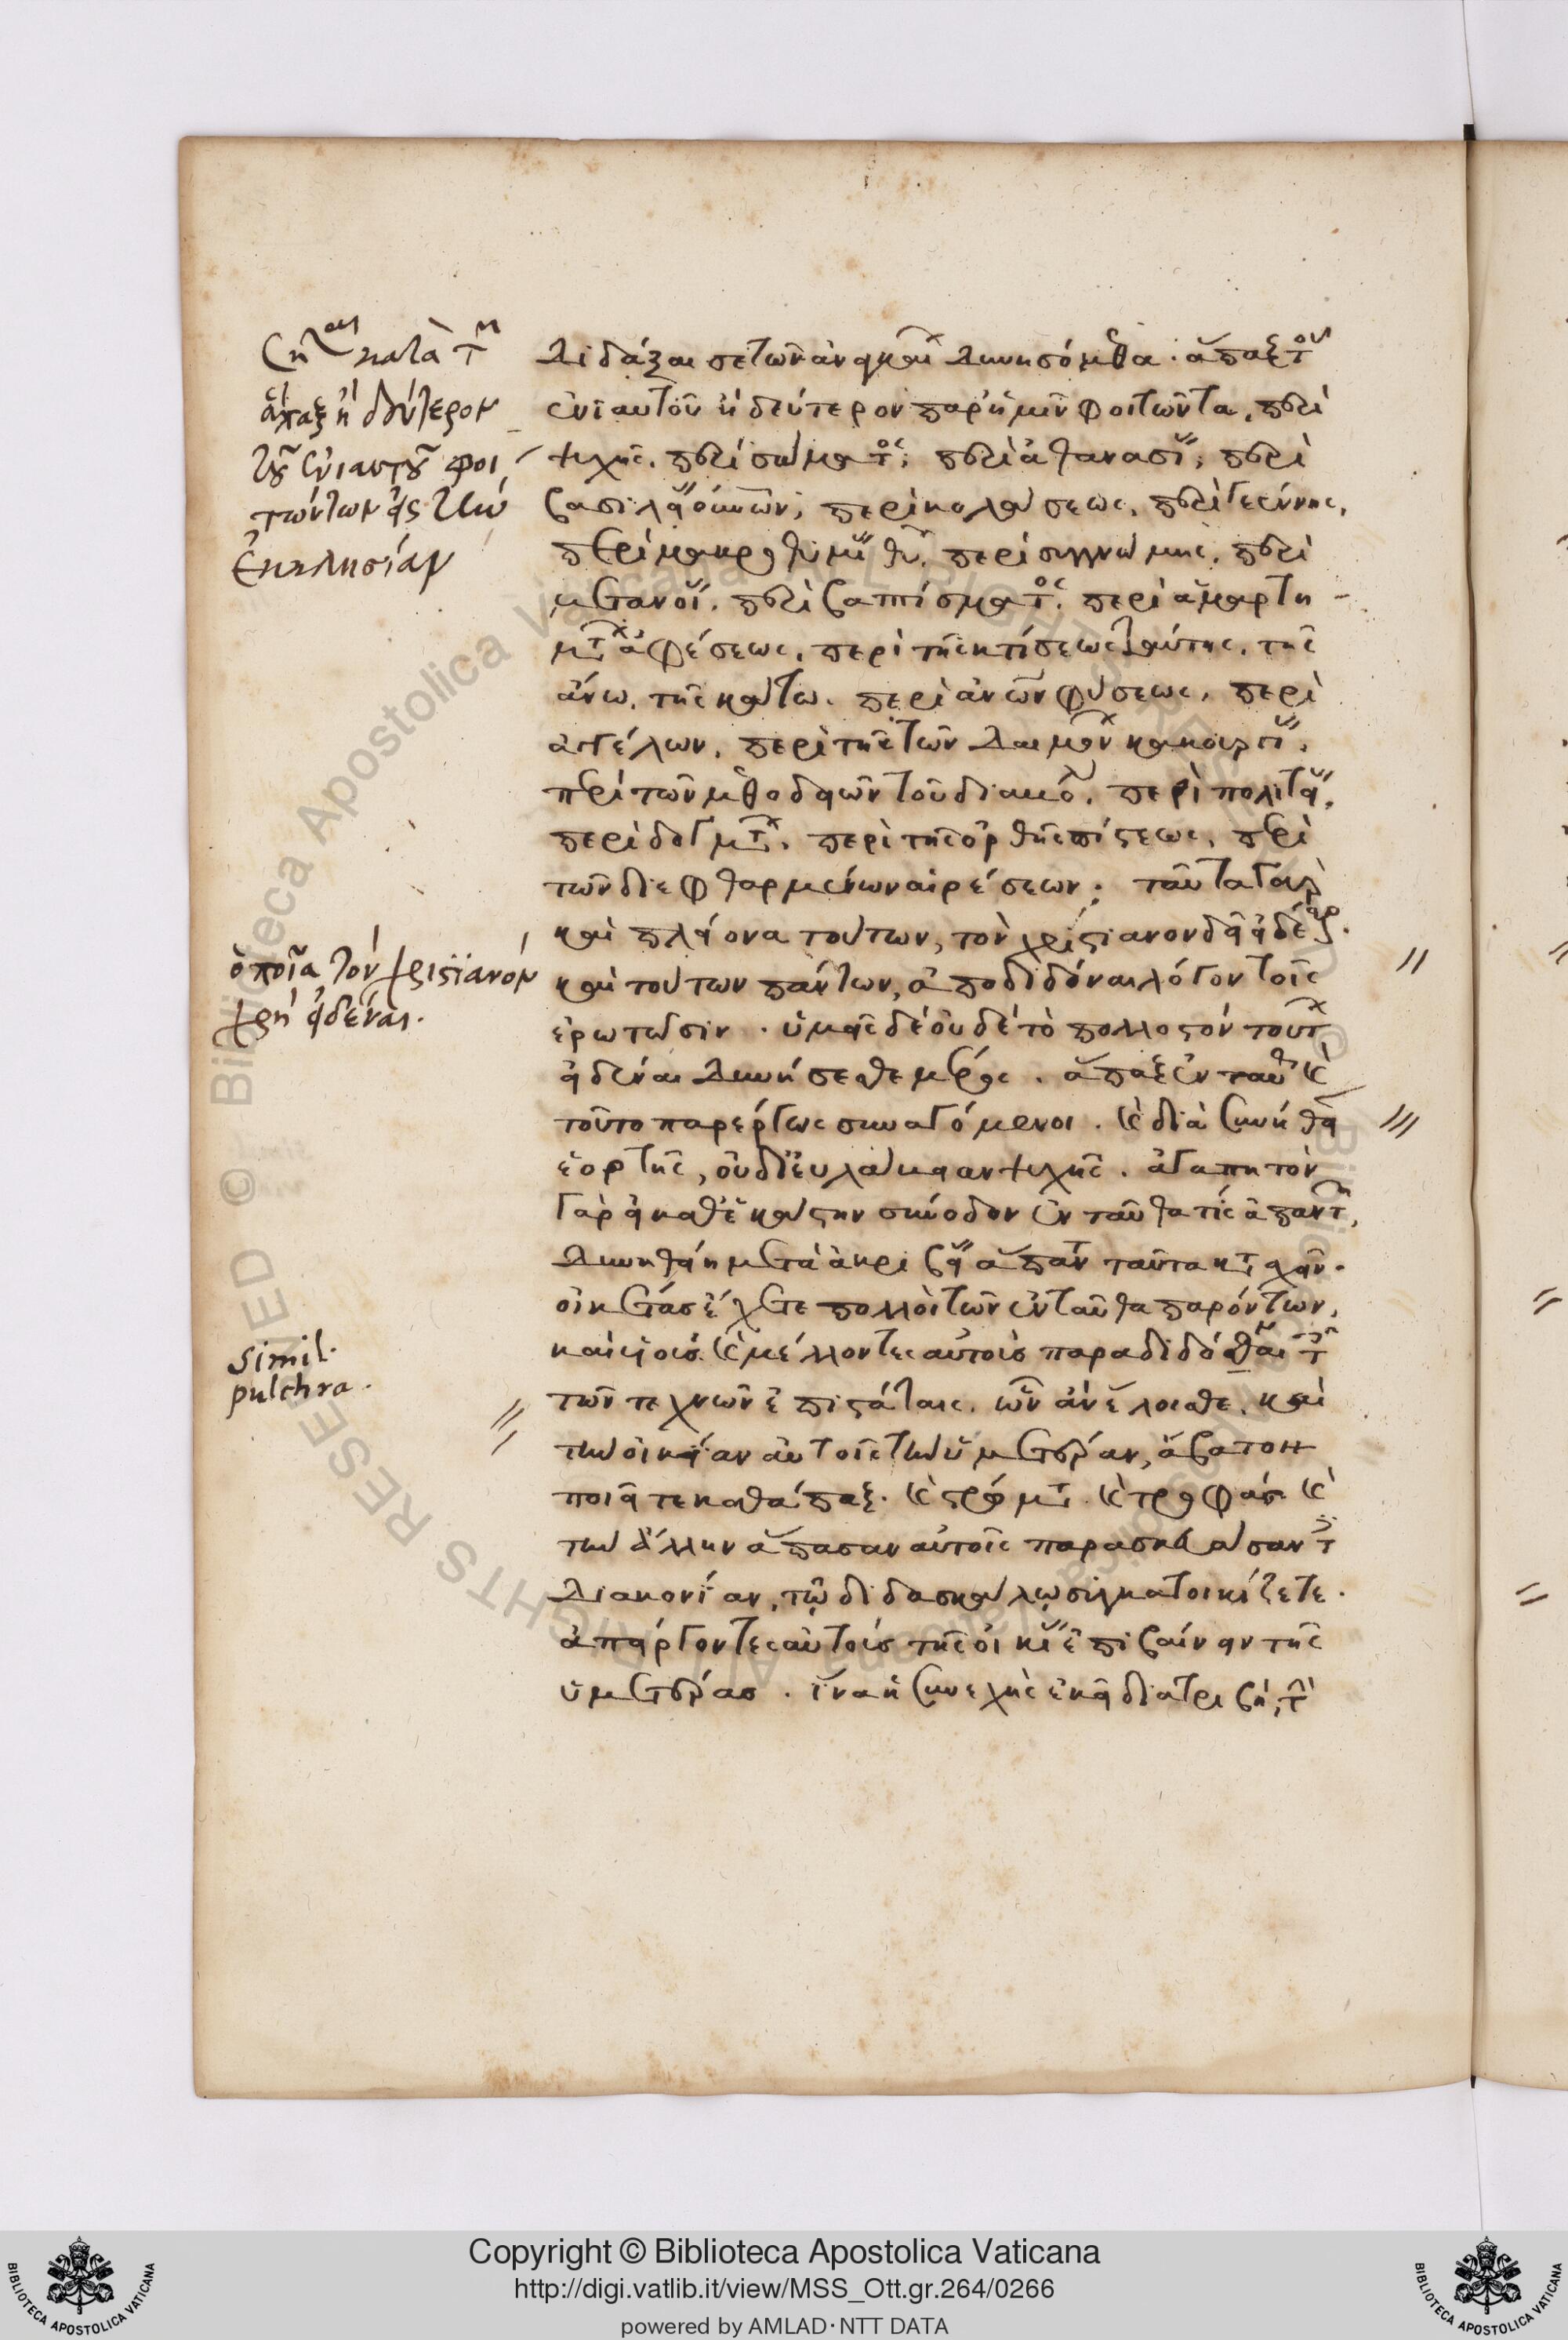 Ση^(αι) κατὰ τ^(ν)
ἅπαξ ἢ δεύτερον
τοῦ ἐνιαυτοῦ φοι
τώντων εἰς τὴν
ἐκκλησίαν
ὁποῖα τὸν χριστιανὸν
χρὴ εἰδέναι.
simil.
pulchra.
διδάξαι σε τῶν ἀναγκαίων δυνησόμεθα. ἅπαξ τοῦ
ἐνιαυτοῦ ἢ δεύτερον παρ' ἡμῖν φοιτῶντα, περὶ
ψυχῆς. περὶ σώματος; περὶ ἀθανασίας; περὶ
βασιλείας οὐρανῶν; περὶ κολάσεως, περὶ γεέννης,
περὶ μακροθυμίας θυ. περὶ συγγνώμης. περὶ
μετανοίας. περὶ βαπτίσματος. περὶ ἁμαρτη
μάτων ἀφέσεως, περὶ τῆς κτίσεως ταύτης. τῆς
ἄνω. τῆς κάτω. περὶ ανων φύσεως, περὶ
ἀγγέλων. περὶ τῆς τῶν δαιμόνων κακουργίας.
περὶ τῶν μεθοδειῶν τοῦ διαβόλου. περὶ πολιτείας.
περὶ δογμάτων. περὶ τῆς ὀρθῆς πίστεως, περὶ
τῶν διεφθαρμένων αἱρέσεων; ταῦτα γὰρ
καὶ πλείονα τούτων, τὸν χριστιανὸν δεῖ εἰδέναι.
καὶ τούτων πάντων, ἀποδιδόναι λόγον τοῖς
ἐρωτῶσιν. ὑμεῖς δὲ οὐδὲ τὸ πολλοστὸν τούτων
εἰδέναι δυνήσεσθε μέρος. ἅπαξ ἐνταῦθα καὶ
τοῦτο παρέργως συναγόμενοι. καὶ διὰ συνήθειαν
ἑορτῆς, οὐ δι' εὐλάβειαν ψυχῆς. ἀγαπητὸν
γὰρ εἰ καθ' ἑκάστην σύνοδον ἐνταῦθά τις ἀπαντῶν,
δυνηθείη μετὰ ἀκριβείας ἅπαντα ταῦτα κατασχεῖν.
οἰκέτας ἔχετε πολλοὶ τῶν ἐνταῦθα παρόντων,
καὶ υἱούς. καὶ μέλλοντες αὐτοὺς παραδιδόσθαι τοῖς
τῶν τεχνῶν ἐπιστάταις. ὧν ἂν ἕλοισθε, καὶ
τὴν οἰκίαν αὐτοῖς τὴν ὑμετέραν, ἄβατον
ποιεῖτε καθάπαξ. καὶ στρώματα καὶ τροφὰς καὶ
τὴν ἄλλην ἅπασαν αὐτοῖς παρασκευάσαντες
διακονίαν, τῷ διδασκάλῳ συγκατοικίζετε.
ἀπείργοντες αὐτοὺς τῆς οἰκίας ἐπιβαίνειν τῆς
ὑμετέρας. ἵνα ἡ συνεχὴς ἐκεῖ διατριβὴ, τὴν
Copyright © Biblioteca Apostolica Vaticana
http://digi.vatlib.it/view/MSS_Ott.gr.264/0266
powered by AMLAD·NTT DATA